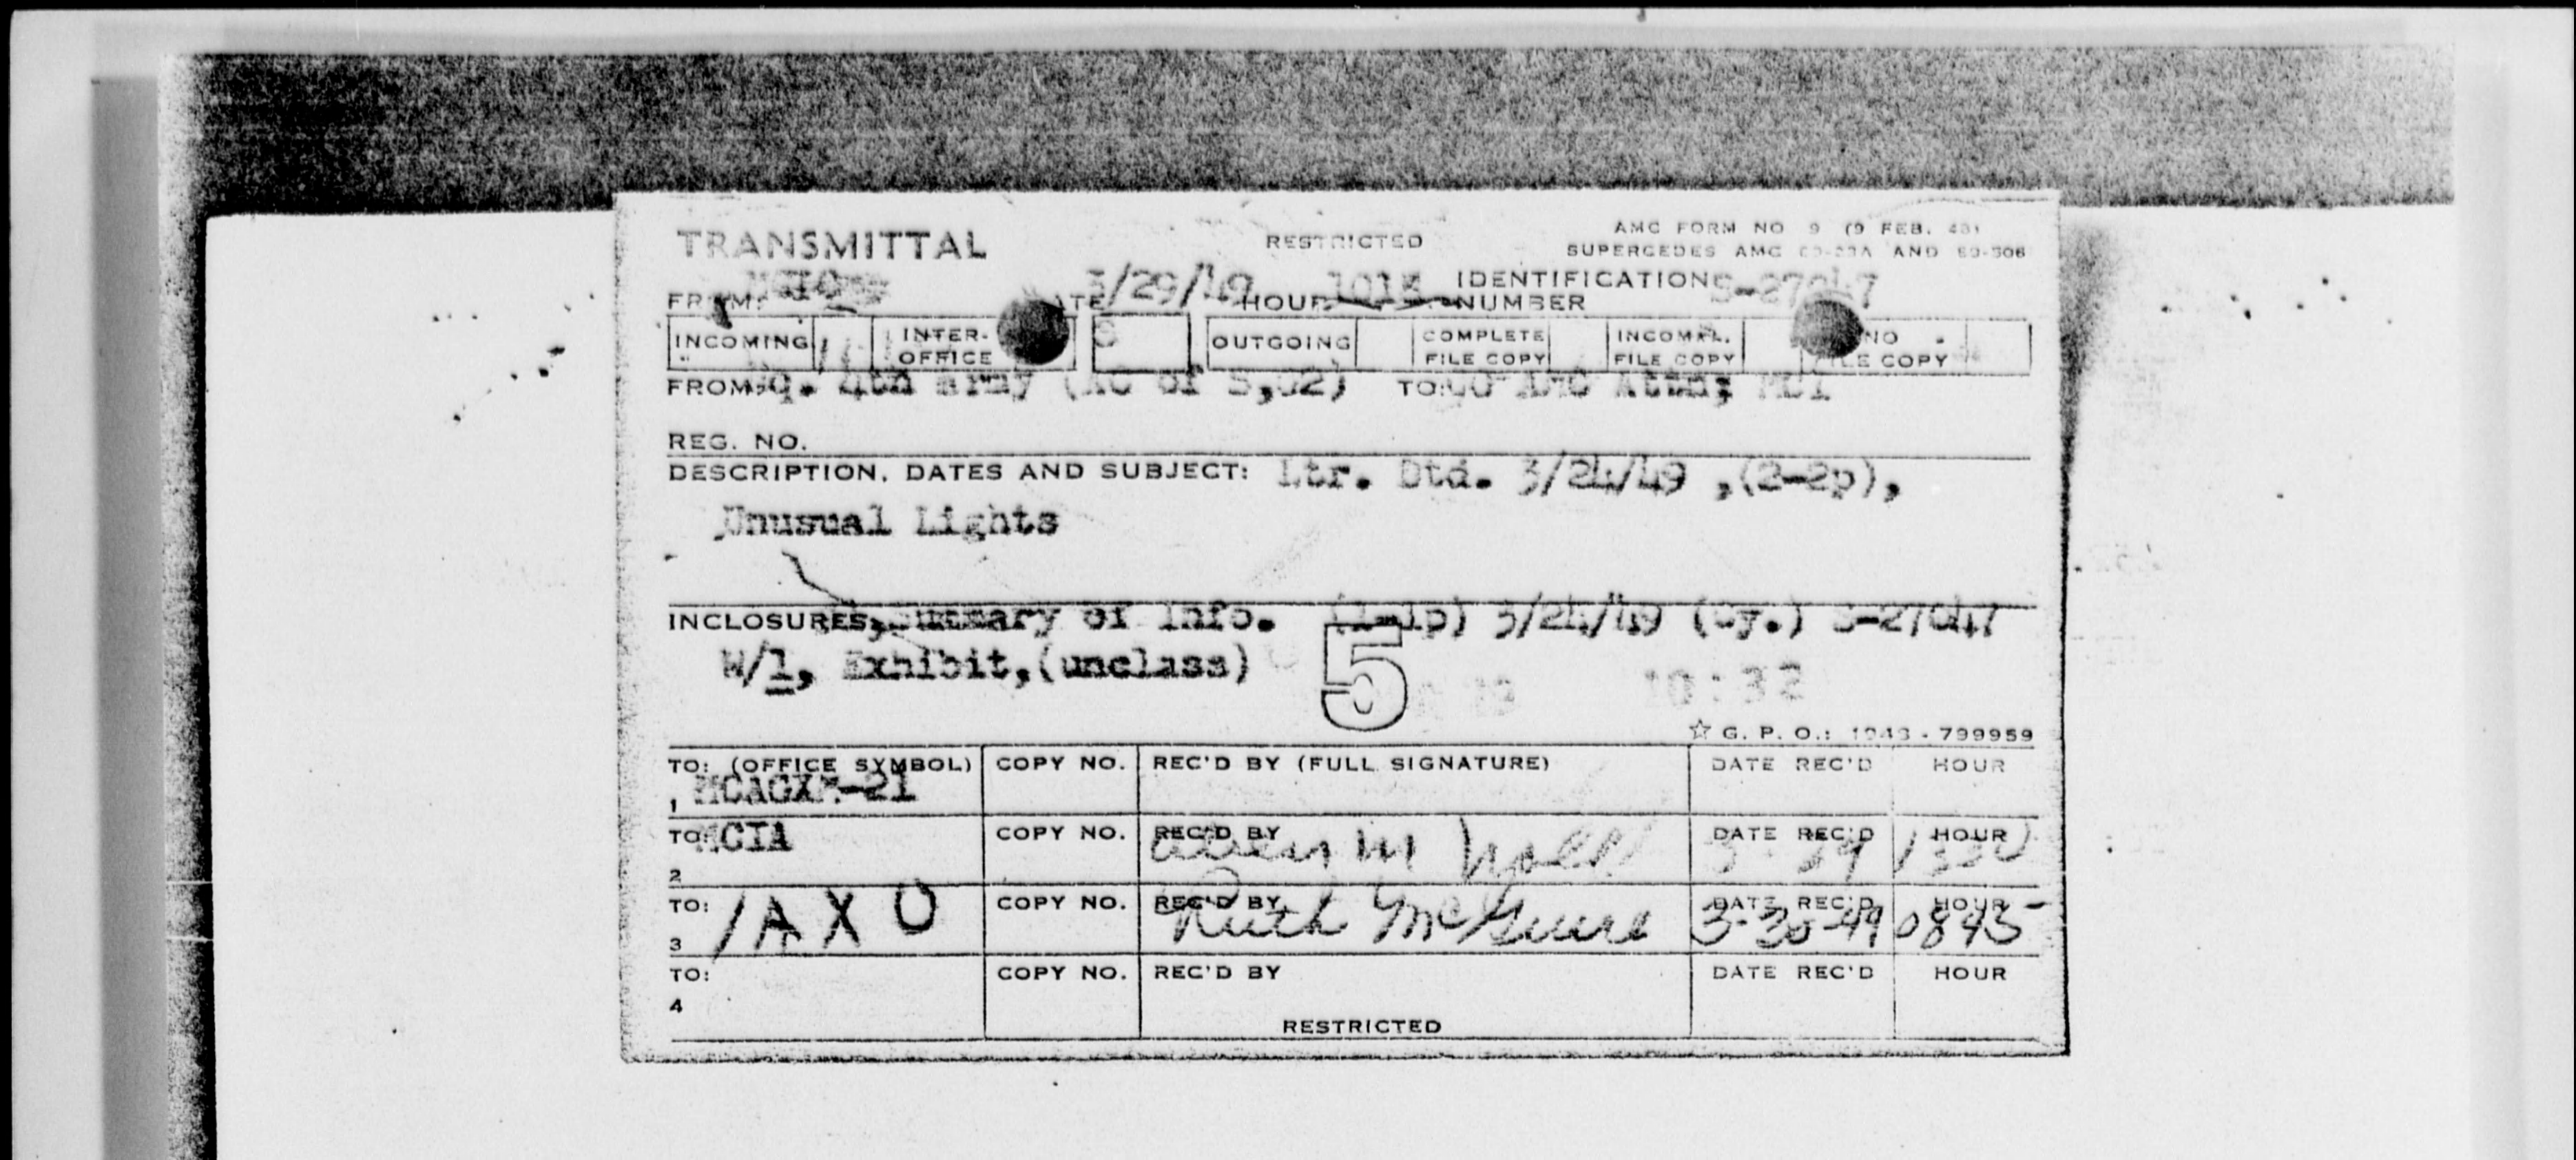 TRANSMITTAL RESTRICTED AMC FORM NO 9 (9 FEB. 48)
SUPERCEDES AMC AND
FROM: DATE 3/29/49 HOUR 1015 IDENTIFICATION NUMBER S-27047
INCOMING INTER-OFFICE OUTGOING COMPLETE FILE COPY INCOMPL. FILE COPY NO FILE COPY
FROM: Hq. 4th Army (AC of S,G2) TO: CG AMC Attn; MCI
REG. NO.
DESCRIPTION, DATES AND SUBJECT: Ltr. Dtd. 3/24/49 ,(2-2p),
Unusual Lights
INCLOSURES, Summary of Info. (1-1p) 3/24/49 (cy.) S-27047
W/1, Exhibit,(unclass)
5 10:32
☆ G. P. O.: 1948 - 799959
TO: (OFFICE SYMBOL) COPY NO. REC'D BY (FULL SIGNATURE) DATE REC'D HOUR
1 MCAGXM-21
TO: MCIA COPY NO. REC'D BY DATE REC'D HOUR
2 3 29 1330
TO: /AXO COPY NO. REC'D BY Ruth McGuire DATE REC'D 3-30-49 HOUR 0845
3
TO: COPY NO. REC'D BY DATE REC'D HOUR
4
RESTRICTED